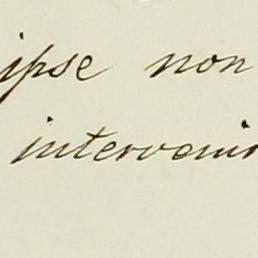 ipse non
intervenir